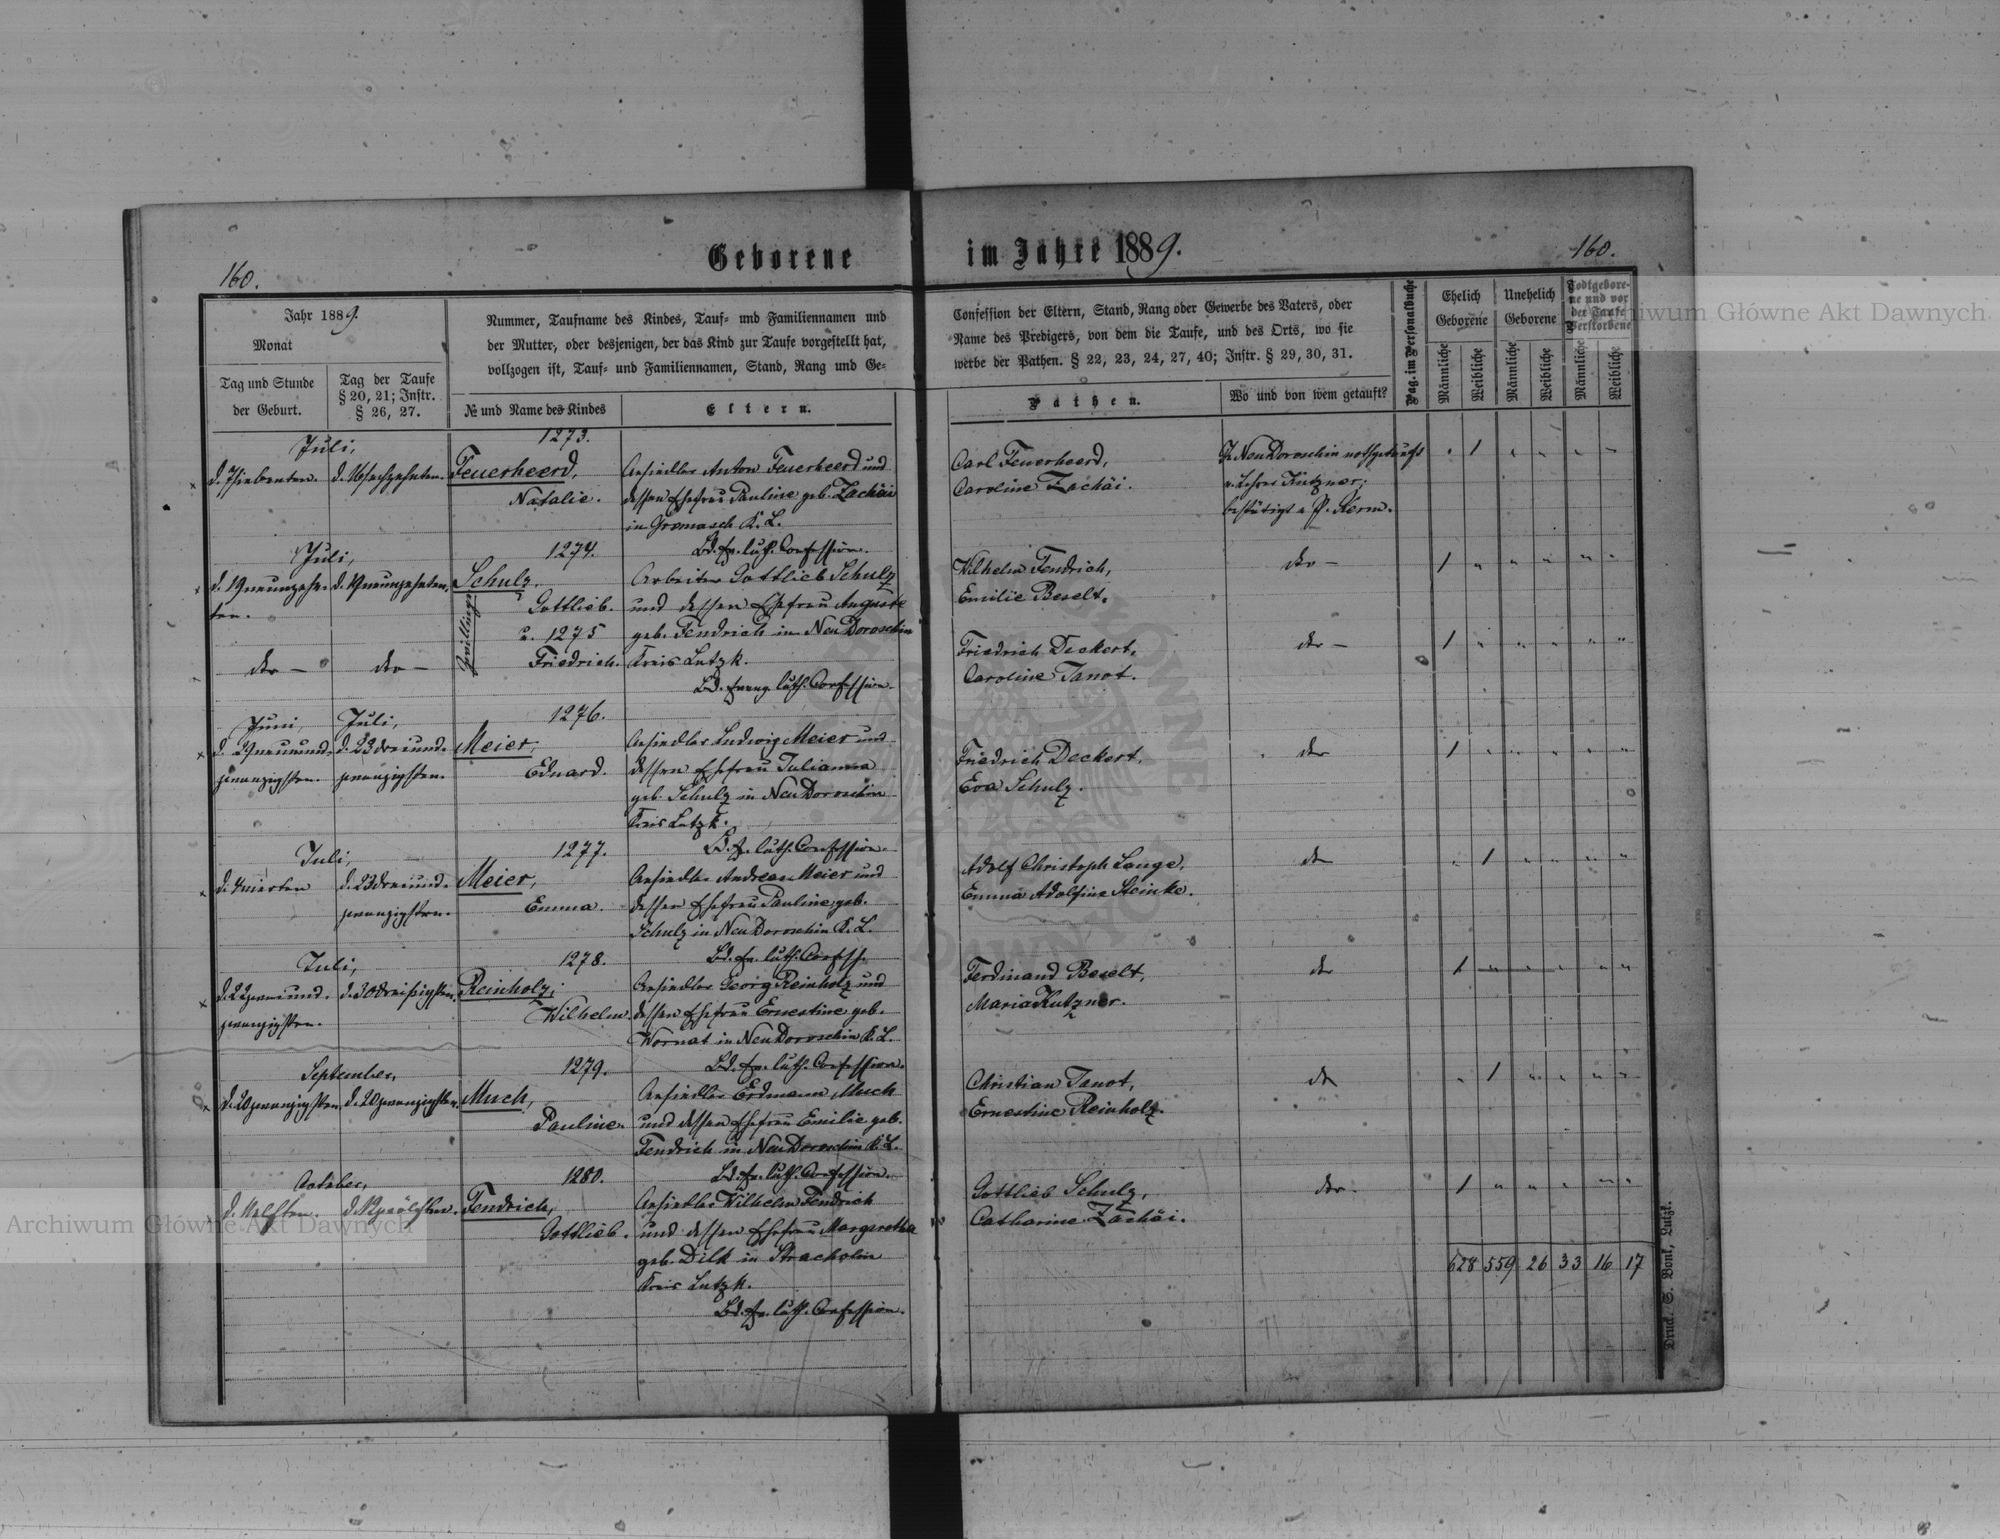 Geborene im Jahre 1889.
160.
160.
Jahr 1889.
Monat
Tag und Stunde
der Geburt.
Tag der Taufe
§ 20, 21; Instr.
§ 26, 27.
Nummer, Taufname des Kindes, Tauf- und Familiennamen und
der Mutter, oder desjenigen, der das Kind zur Taufe vorgestellt hat,
vollzogen ist, Tauf- und Familiennamen, Stand, Rang und Ge-
№ und Name des Kindes
Eltern.
Confession der Eltern, Stand, Rang oder Gewerbe des Vaters, oder
Name des Predigers, von dem die Taufe, und des Orts, wo sie
werbe der Pathen. § 22, 23, 24, 27, 40; Instr. § 29, 30, 31.
Pathen.
Wo und von wem getauft?
Pag. im Personalbuche
Ehelich
Geborene
Unehelich
Geborene
Todtgebore-
ne und vor
der Taufe
Verstorbene
Männliche
Weibliche
Männliche
Weibliche
Männliche
Weibliche
Juli,
d. 7 siebenten. d. 16 sechzehnten.
1273.
Feuerheerd,
Natalie.
Ansiedler Anton Feuerheerd und
dessen Ehefrau Pauline geb. Zachäi
in Gromasch K. L.
Bd. ev. luth. Confession.
Carl Feuerheerd,
Caroline Zachäi.
Z. Neu Doroschin nothgetauft
v. Lehrer Kutzner;
bestätigt v. P. Kerm.
1
Juli,
d. 19 neunzehn- d. 19 neunzehnten.
ten.
1274.
Schulz,
Gottlieb.
Zwillinge
u. 1275
Friedrich.
Arbeiter Gottlieb Schulz
und dessen Ehefrau Auguste
geb. Fendrich in Neu Doroschin
Kreis Lutzk.
Bd. evang. luth. Confession.
Wilhelm Fendrich,
Emilie Beselt.
dto –
1
dto – dto –
Friedrich Deckert,
Caroline Janot.
dto –
1
Juni, Juli,
d. 29 neunund- d. 23 dreiund-
zwanzigsten. zwanzigsten.
1276.
Meier,
Eduard.
Ansiedler Ludwig Meier und
dessen Ehefrau Julianna
geb. Schulz in Neu Doroschin
Kreis Lutzk.
B. ev. luth. Confession.
Friedrich Deckert,
Eva Schulz.
dto
1
Juli,
d. 4 vierten d. 23 dreiund-
zwanzigsten.
1277.
Meier,
Emma.
Ansiedler Andreas Meier und
dessen Ehefrau Pauline geb.
Schulz in Neu Doroschin K. L.
Bd. ev. luth. Confess.
Adolf Christoph Lange,
Emma Adolfine Steinke.
dto
1
Juli,
d. 22 zweiund- d. 30 dreißigsten.
zwanzigsten.
1278.
Reinholz,
Wilhelm.
Ansiedler Georg Reinholz und
dessen Ehefrau Ernestine geb.
Wornat in Neu Doroschin K. L.
Bd. ev. luth. Confession.
Ferdinand Beselt,
Maria Kutzner.
dto
1
September,
d. 20 zwanzigsten. d. 20 zwanzigsten.
1279.
Much,
Pauline.
Ansiedler Erdmann Much
und dessen Ehefrau Emilie geb.
Fendrich in Neu Doroschin K. L.
Bd. ev. luth. Confession.
Christian Janot,
Ernestine Reinholz.
dto
1
October,
d. 11 elften. d. 12 zwölften.
1280.
Fendrich,
Gottlieb.
Ansiedler Wilhelm Fendrich
und dessen Ehefrau Margaretha
geb. Dilk in Stracholin
Kreis Lutzk.
Bd. ev. luth. Confession.
Gottlieb Schulz,
Catharine Zachäi.
dto.
1
628 559 26 33 16 17
Druck. S. Bonk, Lutzk.
Archiwum Główne Akt Dawnych
Archiwum Główne Akt Dawnych